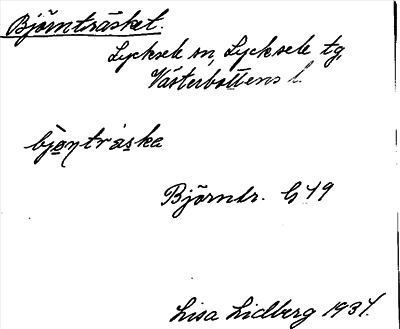 Björnträsket.
Lycksele sn, Lycksele tg,
Västerbottens l.
bjȯn̩tràska
Björntr. G 49
Lisa Lidberg 1937.